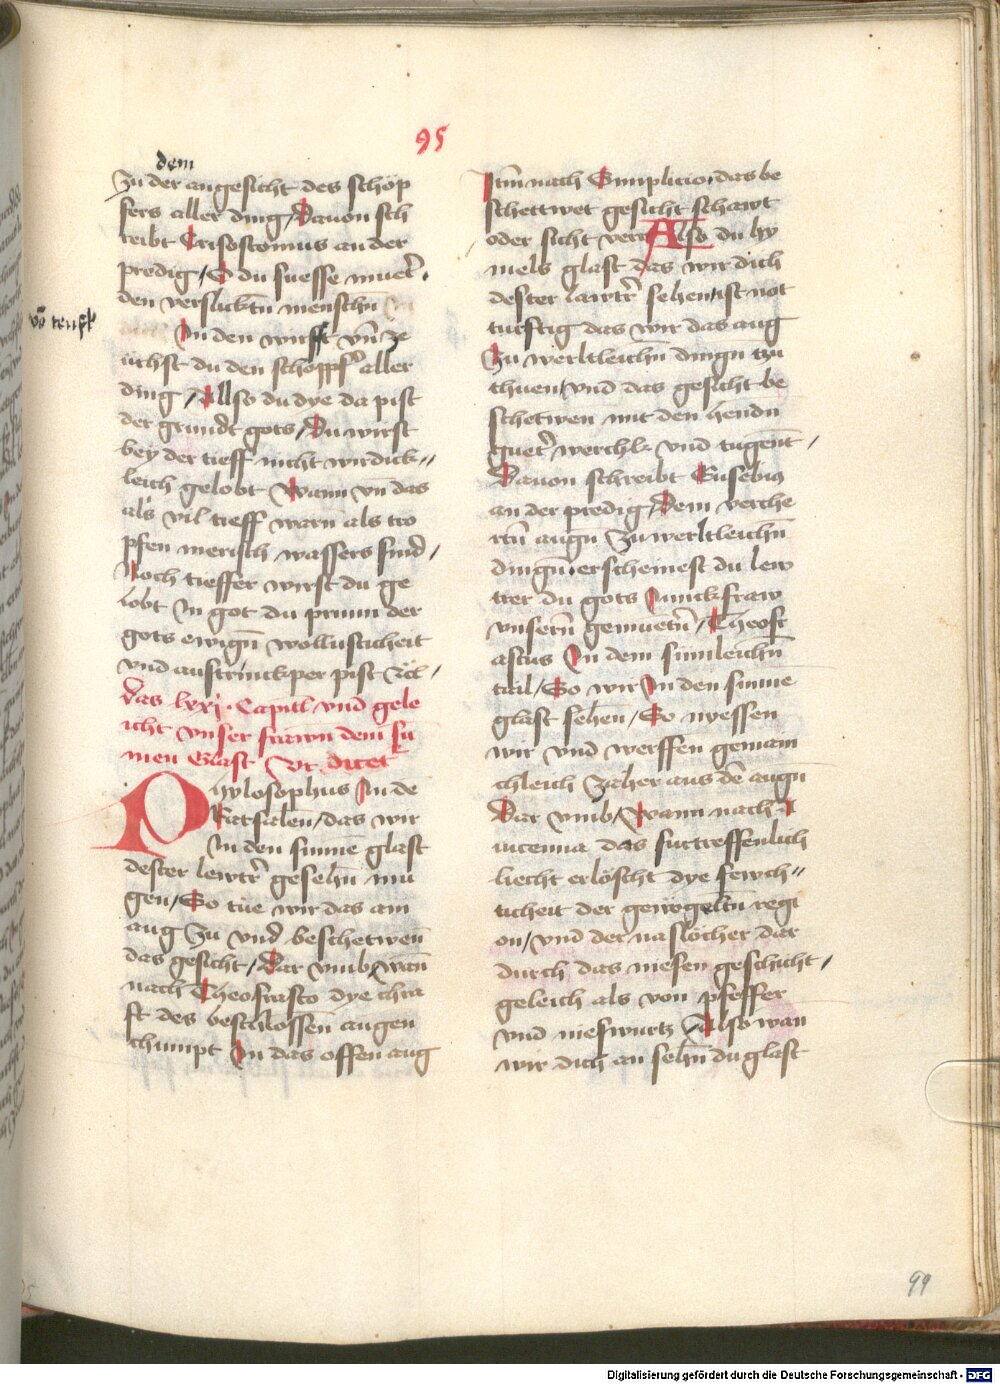 95
dem
Zu der angesicht des schöp
fers aller ding / Dauon sch
reibt Crisostomus an der
predig / O du suesse muet̄
den verslicktn̄ menschn̄
vō teufl
In den wirfst vn̄ ze
uchst du den schöppf̄ aller
ding / Allso du dye da pist
der grundt gots / Du wirst
bey der tieff nicht wirdick //
leich gelobt Wann vn̄ das
als vil tieff warn̄ als tro
pfen merisch wassers sind /
Noch tieffer wirst du ge
lobt In got du prunn der
gots ewign̄ wollusticheit
vnd austrinckper pist Rc̄l /
das lxxj. Capitl vnd gele
icht vnser frawn dem sū
nen Glast Vt dicet̄
Phylosophus In de
Katsalen / das wir
In den sinnē glast
dester lewtr̄ gesehn̄ mu
gen / So tüe wir das am
aug Zu vnd beschetwen̄
das gesicht / Dar vmb wan̄
nach Theofrasto dye chra
ft des beschlossen̄ augen
chumpt In das offen aug
Itm̄ nach Simplicio, das be
schettwet gesicht schawt
oder sicht verr Also du hy
mels glast das wir dich
dester lawtr̄ sehen, ist not
turftig das wir das aug
Zu werltleichn̄ dingn̄ tzu
thuen / vnd das gesicht be
schetwen mit den hendn̄
guet̄ werchk vnd tugent̄ /
Dauon schreibt Eusebius
an der predig / Dem verche
rtn̄ augn̄ Zu werltleichn̄
dingn̄ erscheinest du lew
tter du gots Junckfraw
vnsern̄ gemuetn̄ / Theofr
astus In dem sinnleichn̄
tail / So wir In den sinne
glast sehen / So nyessen
wir vnd werffen gemain
chleich Zäher aus dē augn̄
Dar vmb / Wann nach A
uicenna das furtreffenlich
liecht erlöscht dye fewch //
ticheit der gewogeltn̄ regi
on / vnd der naslöcher dar
durch das niesen geschicht /
geleich als von pfeffer
vnd nieswurtz / Also wan
wir dich an sehn̄ du glast
99
Digitalisierung gefördert durch die Deutsche Forschungsgemeinschaft - DFG